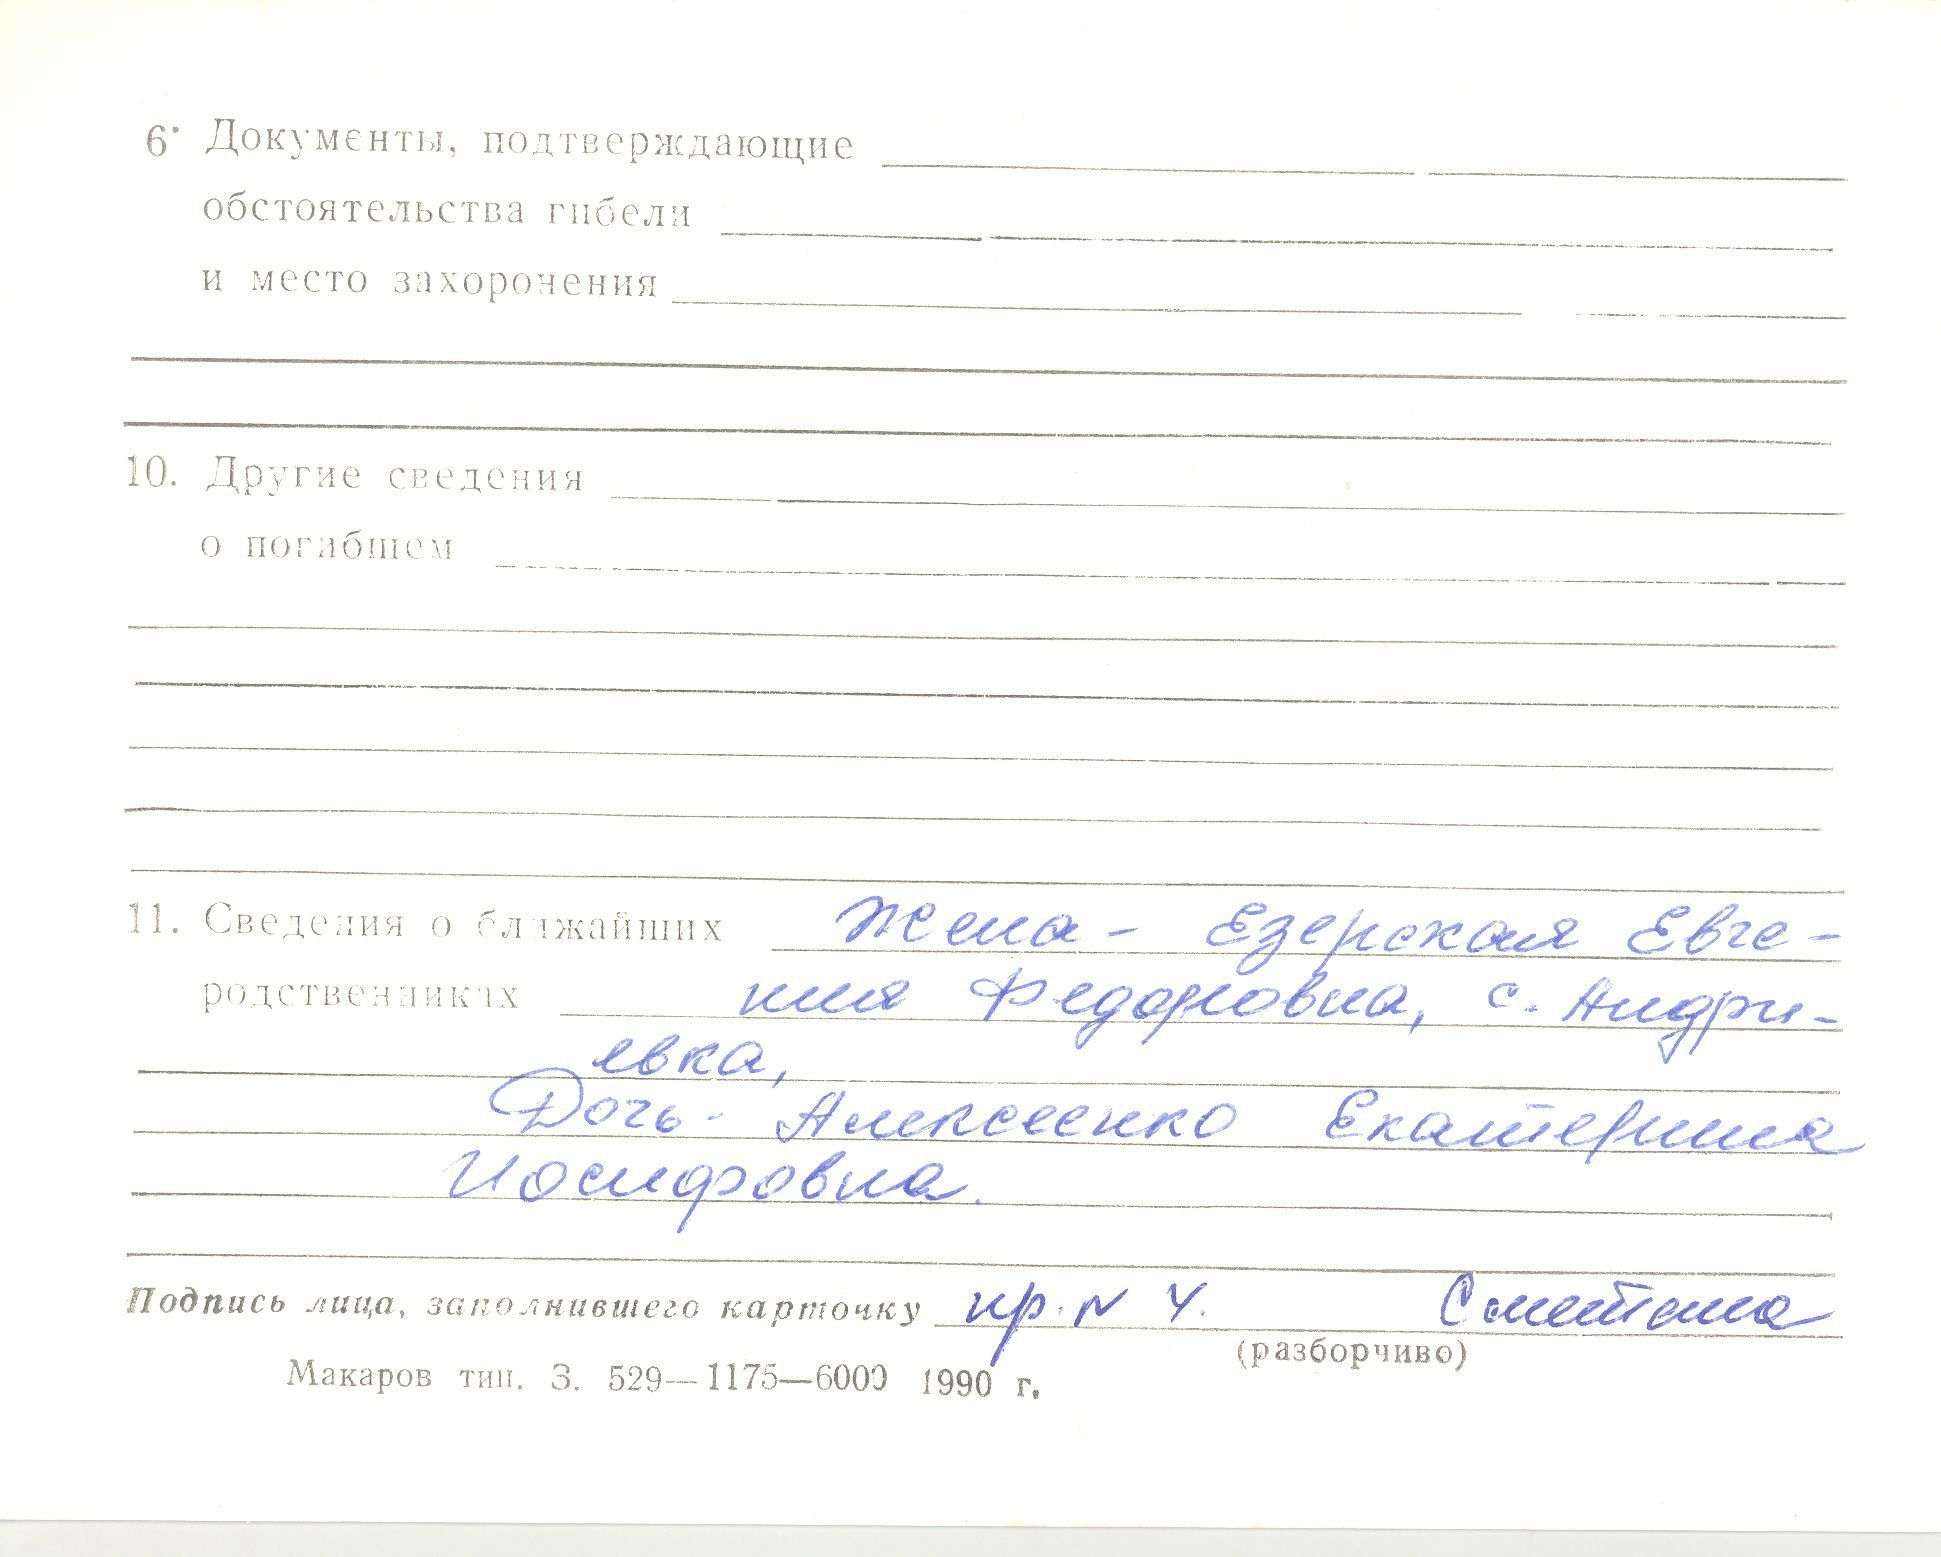 6. Документы, подтверждающие
обстоятельства гибели
и место захоронения
10. Другие сведения
о погибшем
11. Сведения о ближайших Жена - Езерская Евге-
родственниках ния Федоровна, с. Андри-
евка,
Дочь - Алексеенко Екатерина
Иосифовна.
Подпись лица, заполнившего карточку пр. N 4. Сметана
(разборчиво)
Макаров тип. З. 529—1175—6000 1990 г.